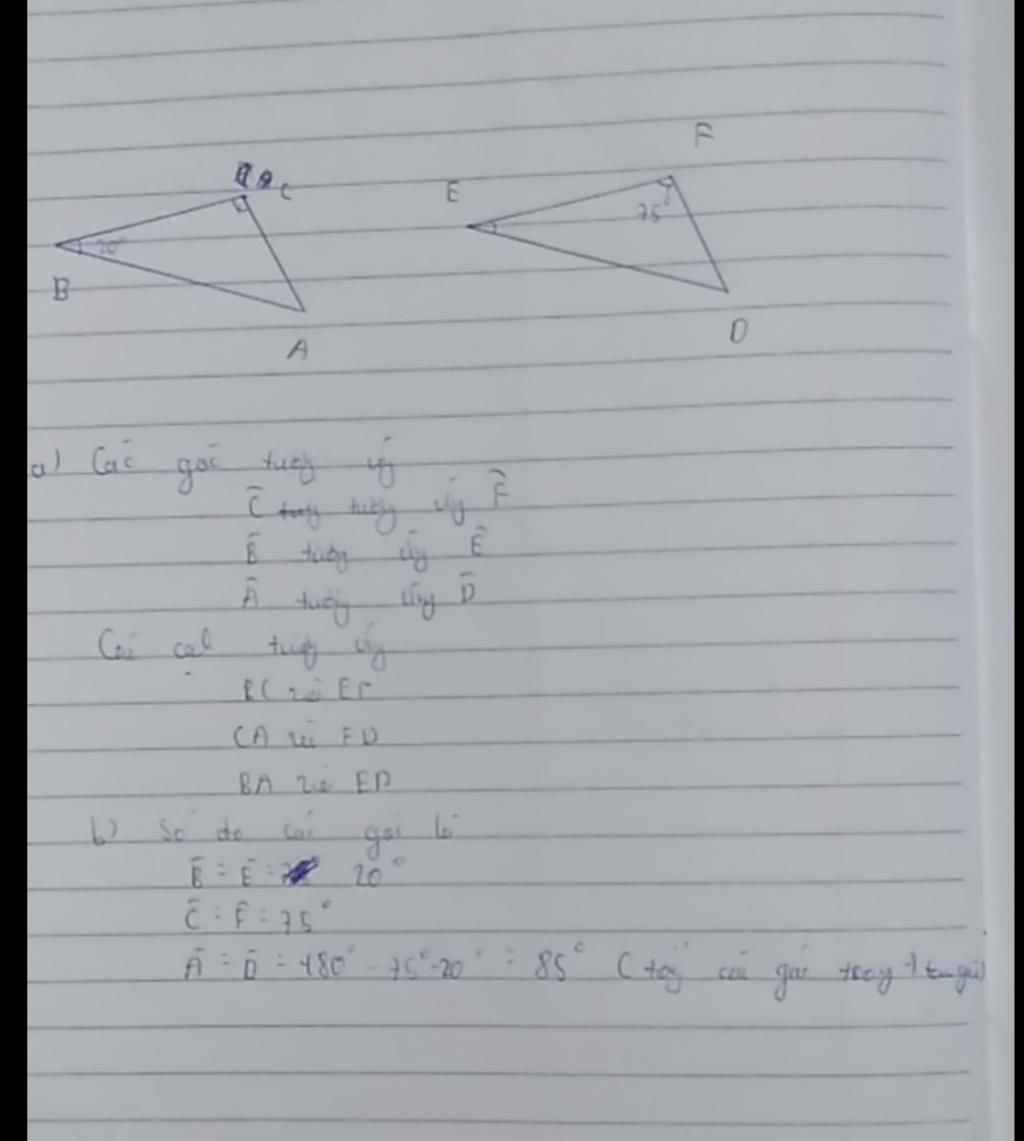 C
F
E
20°
75°
B
A
D
a) Các góc tương ứng
Ĉ tương ứng F̂
B̂ tương ứng Ê
Â tương ứng D̂
Các cạnh tương ứng
BC và EF
CA và FD
BA và ED
b) Số đo các góc là
B̂ = Ê = 20°
Ĉ = F̂ = 75°
Â = D̂ = 180° - 75° - 20° = 85° ( tổng các góc trong 1 tam giác)